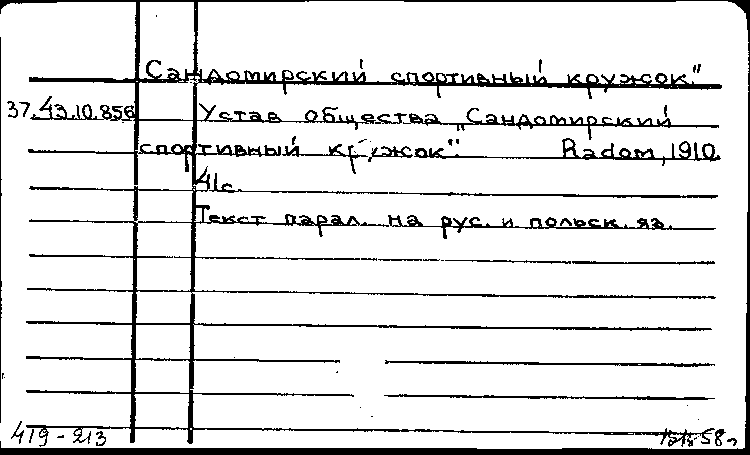 Сандомирский спортивный кружок."
37.43.10.856 Устав общества „Сандомирский
спортивный кружок". Radom, 1910.
41с.
Текст парал. на рус. и польск. яз.
419-213